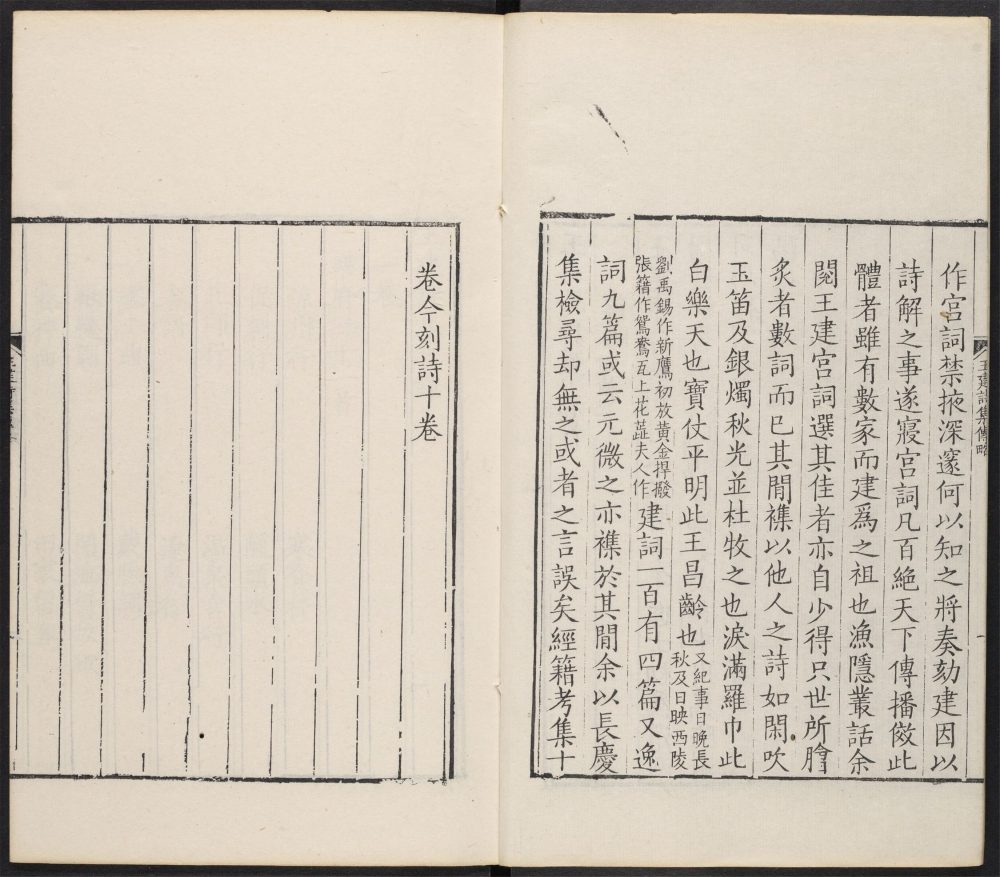 王建詩集傳略
作宮詞禁掖深邃何以知之將奏劾建因以
詩解之事遂寢宮詞凡百絕天下傳播倣此
體者雖有數家而建爲之祖也漁隱叢話余
閱王建宮詞選其佳者亦自少得只世所膾
炙者數詞而已其閒襍以他人之詩如閑吹
玉笛及銀燭秋光並杜牧之也淚滿羅巾此
白樂天也寶仗平明此王昌齡也又紀事日晚長
秋及日映西陵
劉禹錫作新鷹初放黃金捍撥
張籍作鴛鴦瓦上花蕋夫人作建詞一百有四篇又逸
詞九篇或云元微之亦襍於其閒余以長慶
集檢尋却無之或者之言誤矣經籍考集十
卷今刻詩十卷